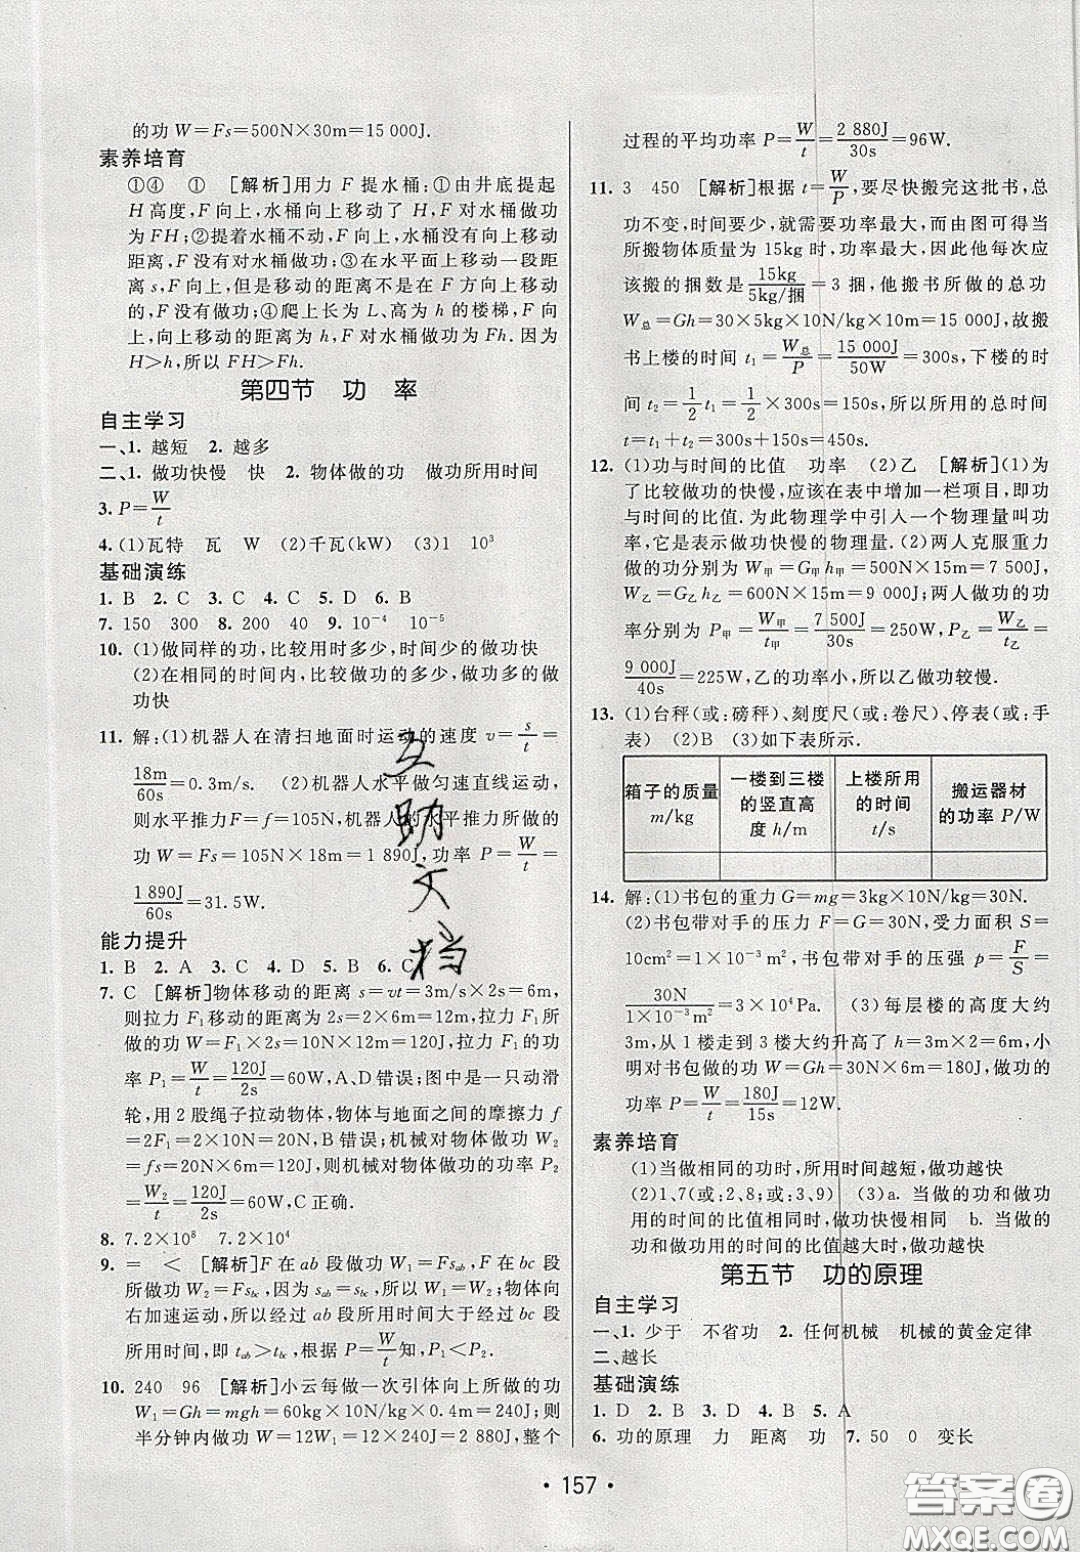 的功W=Fs=500N×30m=15 000J.
素养培育
①④ ① [解析]用力F提水桶:①由井底提起
H高度,F向上,水桶向上移动了H,F对水桶做功
为FH;②提着水桶不动,F向上,水桶没有向上移动
距离,F没有对水桶做功;③在水平面上移动一段距
离s,F向上,但是移动的距离不是在F方向上移动
的,F没有做功;④爬上长为L、高为h的楼梯,F向
上,向上移动的距离为h,F对水桶做功为Fh.因为
H>h,所以FH>Fh.
第四节 功 率
自主学习
一、1. 越短 2. 越多
二、1. 做功快慢 快 2. 物体做的功 做功所用时间
3. P=W/t
4. (1)瓦特 瓦 W (2)千瓦(kW) (3)1 10³
基础演练
1. B 2. C 3. C 4. C 5. D 6. B
7. 150 300 8. 200 40 9. 10⁻⁴ 10⁻⁵
10. (1)做同样的功,比较用时多少,时间少的做功快
(2)在相同的时间内,比较做功的多少,做功多的做
功快
11. 解:(1)机器人在清扫地面时运动的速度v=s/t=
18m/60s=0.3m/s. (2)机器人水平做匀速直线运动,
则水平推力F=f=105N,机器人的水平推力所做的
功W=Fs=105N×18m=1 890J,功率P=W/t=
1 890J/60s=31.5W.
能力提升
1. B 2. A 3. C 4. D 5. B 6. C
7. C [解析]物体移动的距离s=vt=3m/s×2s=6m,
则拉力F₁移动的距离为2s=2×6m=12m,拉力F₁
所做的功W=F₁×2s=10N×12m=120J,拉力F₁的功
率P₁=W/t=120J/2s=60W,A、D错误;图中是一只动滑
轮,用2股绳子拉动物体,物体与地面之间的摩擦力f
=2F₁=2×10N=20N,B错误;机械对物体做功W₂
=fs=20N×6m=120J,则机械对物体做功的功率P₂
=W₂/t=120J/2s=60W,C正确.
8. 7.2×10⁸ 7.2×10⁴
9. = < [解析]F在ab段做功W₁=Fs_ab,F在bc
段所做功W₂=Fs_bc,因为s_ab=s_bc,所以W₁=W₂;物体向
右加速运动,所以经过ab段所用时间大于经过bc段
所用时间,即t_ab>t_bc,根据P=W/t知,P₁<P₂.
10. 240 96 [解析]小云每做一次引体向上所做的功
W₁=Gh=mgh=60kg×10N/kg×0.4m=240J;则
半分钟内做功W=12W₁=12×240J=2 880J,整个
过程的平均功率P=W/t=2 880J/30s=96W.
11. 3 450 [解析]根据t=W/P,要尽快搬完这批书,总
功不变,时间要少,就需要功率最大,而由图可得当
所搬物体质量为15kg时,功率最大,因此他每次应
该搬的捆数是15kg/5kg/捆=3捆,他搬书所做的总功
W总=Gh=30×5kg×10N/kg×10m=15 000J,故搬
书上楼的时间t₁=W总/P=15 000J/50W=300s,下楼的时
间t₂=1/2t₁=1/2×300s=150s,所以所用的总时间
t=t₁+t₂=300s+150s=450s.
12. (1)功与时间的比值 功率 (2)乙 [解析](1)为
了比较做功的快慢,应该在表中增加一栏项目,即功
与时间的比值.为此物理学中引入一个物理量叫功
率,它是表示做功快慢的物理量.(2)两人克服重力
做的功分别为W甲=G甲h甲=500N×15m=7 500J,
W乙=G乙h乙=600N×15m=9 000J;两人做功的功
率分别为P甲=W甲/t甲=7 500J/30s=250W,P乙=W乙/t乙=
9 000J/40s=225W,乙的功率小,所以乙做功较慢.
13. (1)台秤(或:磅秤)、刻度尺(或:卷尺)、停表(或:手
表) (2)B (3)如下表所示.
箱子的质量 一楼到三楼 上楼所用 搬运器材
m/kg 的竖直高 的时间 的功率P/W
度h/m t/s
14. 解:(1)书包的重力G=mg=3kg×10N/kg=30N.
(2)书包带对手的拉力F=G=30N,受力面积S=
10cm²=1×10⁻³m²,书包带对手的压强p=F/S=
30N/1×10⁻³m²=3×10⁴Pa. (3)每层楼的高度大约
3m,从1楼走到3楼大约升高了h=3m×2=6m,小
明对书包做的功W=Gh=30N×6m=180J,做功
的功率P=W/t=180J/15s=12W.
素养培育
(1)当做相同的功时,所用时间越短,做功越快
(2)1、7(或:2、8;或:3、9) (3)a. 当做的功和做功
用的时间的比值相同时,做功快慢相同 b. 当做的
功和做功用的时间的比值越大时,做功越快
第五节 功的原理
自主学习
一、1. 少于 不省功 2. 任何机械 机械的黄金定律
二、越长
基础演练
1. D 2. D 3. B 4. B 5. A
6. 功的原理 力 距离 功 7. 50 0 变长
· 157 ·
互助文档
答案圈
MXQE.COM